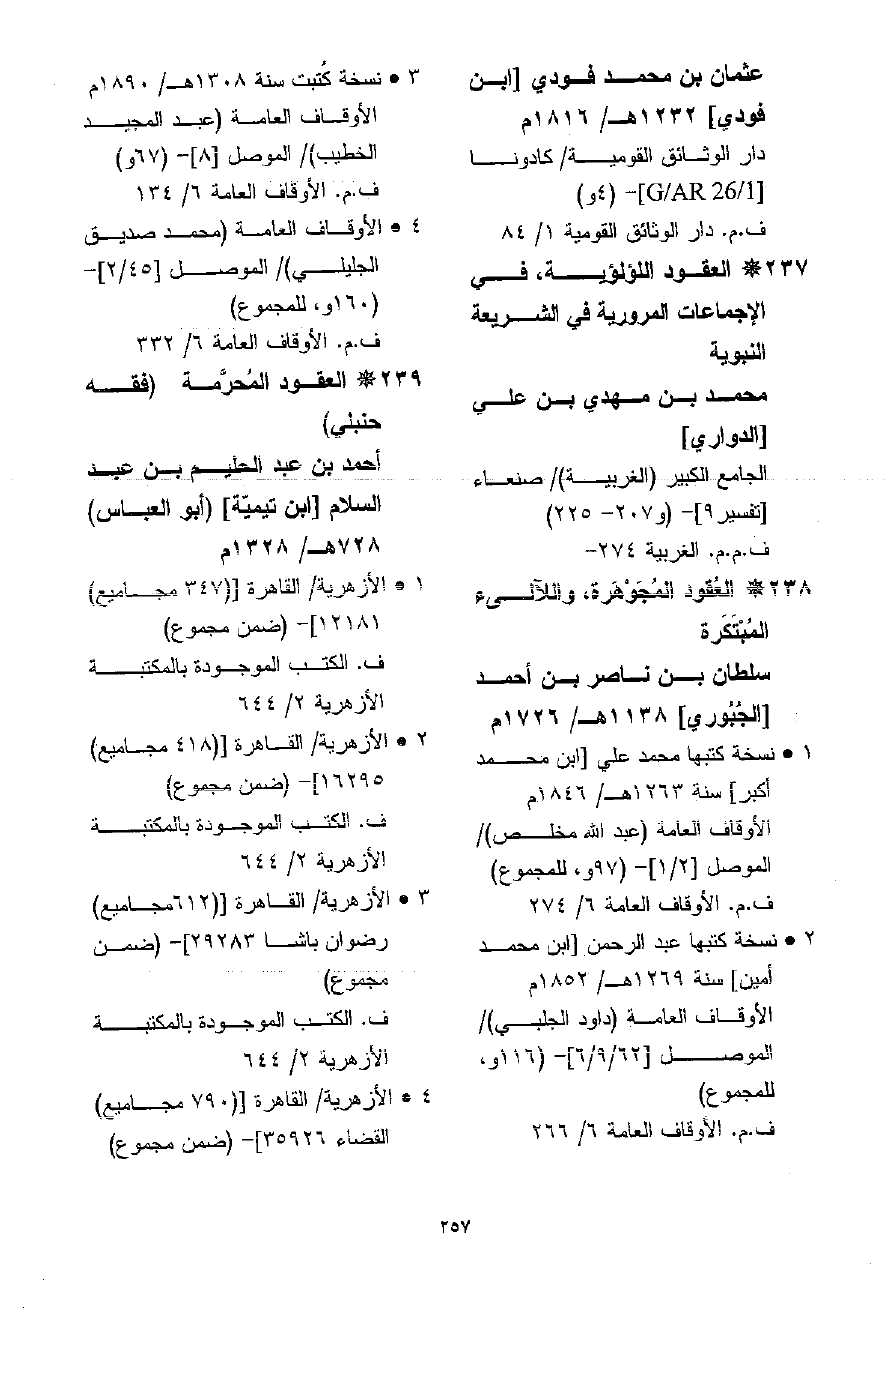 عثمان بن محمد فودي [ابن
فودي] ١٢٣٢هـ/ ١٨١٦م
دار الوثائق القومية/ كادونا
[G/AR 26/1]- (٤و)
ف.م. دار الوثائق القومية ١/ ٨٤
٢٣٧* العقود اللؤلؤية، في
الإجماعات المرورية في الشريعة
النبوية
محمد بن مهدي بن علي
[الدواري]
الجامع الكبير (الغربية)/ صنعاء
[تفسير ٩]- (و٢٠٧- ٢٢٥)
ف.م.م. الغربية ٢٧٤-
٢٣٨* العُقُود المُجَوْهَرة، واللآلىء
المُبْتَكَرة
سلطان بن ناصر بن أحمد
[الجُبُوري] ١١٣٨هـ/ ١٧٢٦م
١ • نسخة كتبها محمد علي [ابن محمد
أكبر] سنة ١٢٦٣هـ/ ١٨٤٦م
الأوقاف العامة (عبد الله مخلص)/
الموصل [١/٢]- (٩٧و، للمجموع)
ف.م. الأوقاف العامة ٦/ ٢٧٤
٢ • نسخة كتبها عبد الرحمن [ابن محمد
أمين] سنة ١٢٦٩هـ/ ١٨٥٢م
الأوقاف العامة (داود الجلبي)/
الموصل [٦/٩/٦٢]- (١١٦و،
للمجموع)
ف.م. الأوقاف العامة ٦/ ٢٦٦
٣ • نسخة كُتبت سنة ١٣٠٨هـ/ ١٨٩٠م
الأوقاف العامة (عبد المجيد
الخطيب)/ الموصل [٨]- (٦٧و)
ف.م. الأوقاف العامة ٦/ ١٣٤
٤ • الأوقاف العامة (محمد صديق
الجليلي)/ الموصل [٢/٤٥]-
(١٦٠و، للمجموع)
ف.م. الأوقاف العامة ٦/ ٣٣٢
٢٣٩* العقود المُحرَّمة (فقه
حنبلي)
أحمد بن عبد الحليم بن عبد
السلام [ابن تيميّة] (أبو العباس)
٧٢٨هـ/ ١٣٢٨م
١ • الأزهرية/ القاهرة [(٣٤٧ مجاميع)
١٢١٨١]- (ضمن مجموع)
ف. الكتب الموجودة بالمكتبة
الأزهرية ٢/ ٦٤٤
٢ • الأزهرية/ القاهرة [(٤١٨ مجاميع)
١٦٢٩٥]- (ضمن مجموع)
ف. الكتب الموجودة بالمكتبة
الأزهرية ٢/ ٦٤٤
٣ • الأزهرية/ القاهرة [(٦١٢مجاميع)
رضوان باشا ٢٩٢٨٣]- (ضمن
مجموع)
ف. الكتب الموجودة بالمكتبة
الأزهرية ٢/ ٦٤٤
٤ • الأزهرية/ القاهرة [(٧٩٠ مجاميع)
القضاء ٣٥٩٢٦]- (ضمن مجموع)
٢٥٧